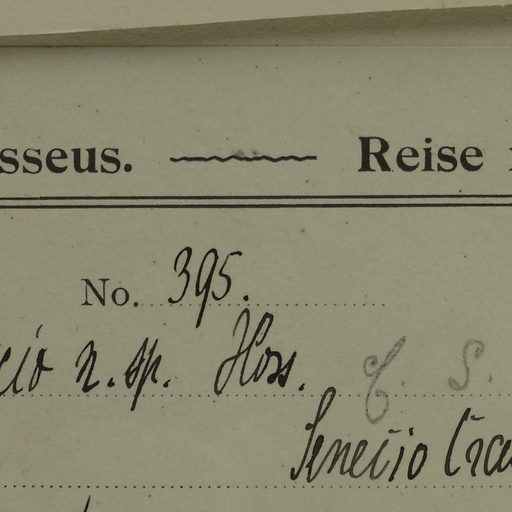 sseus. Reise
No. 395.
cio n. sp. Hoss. C. S.
Senecio Cra